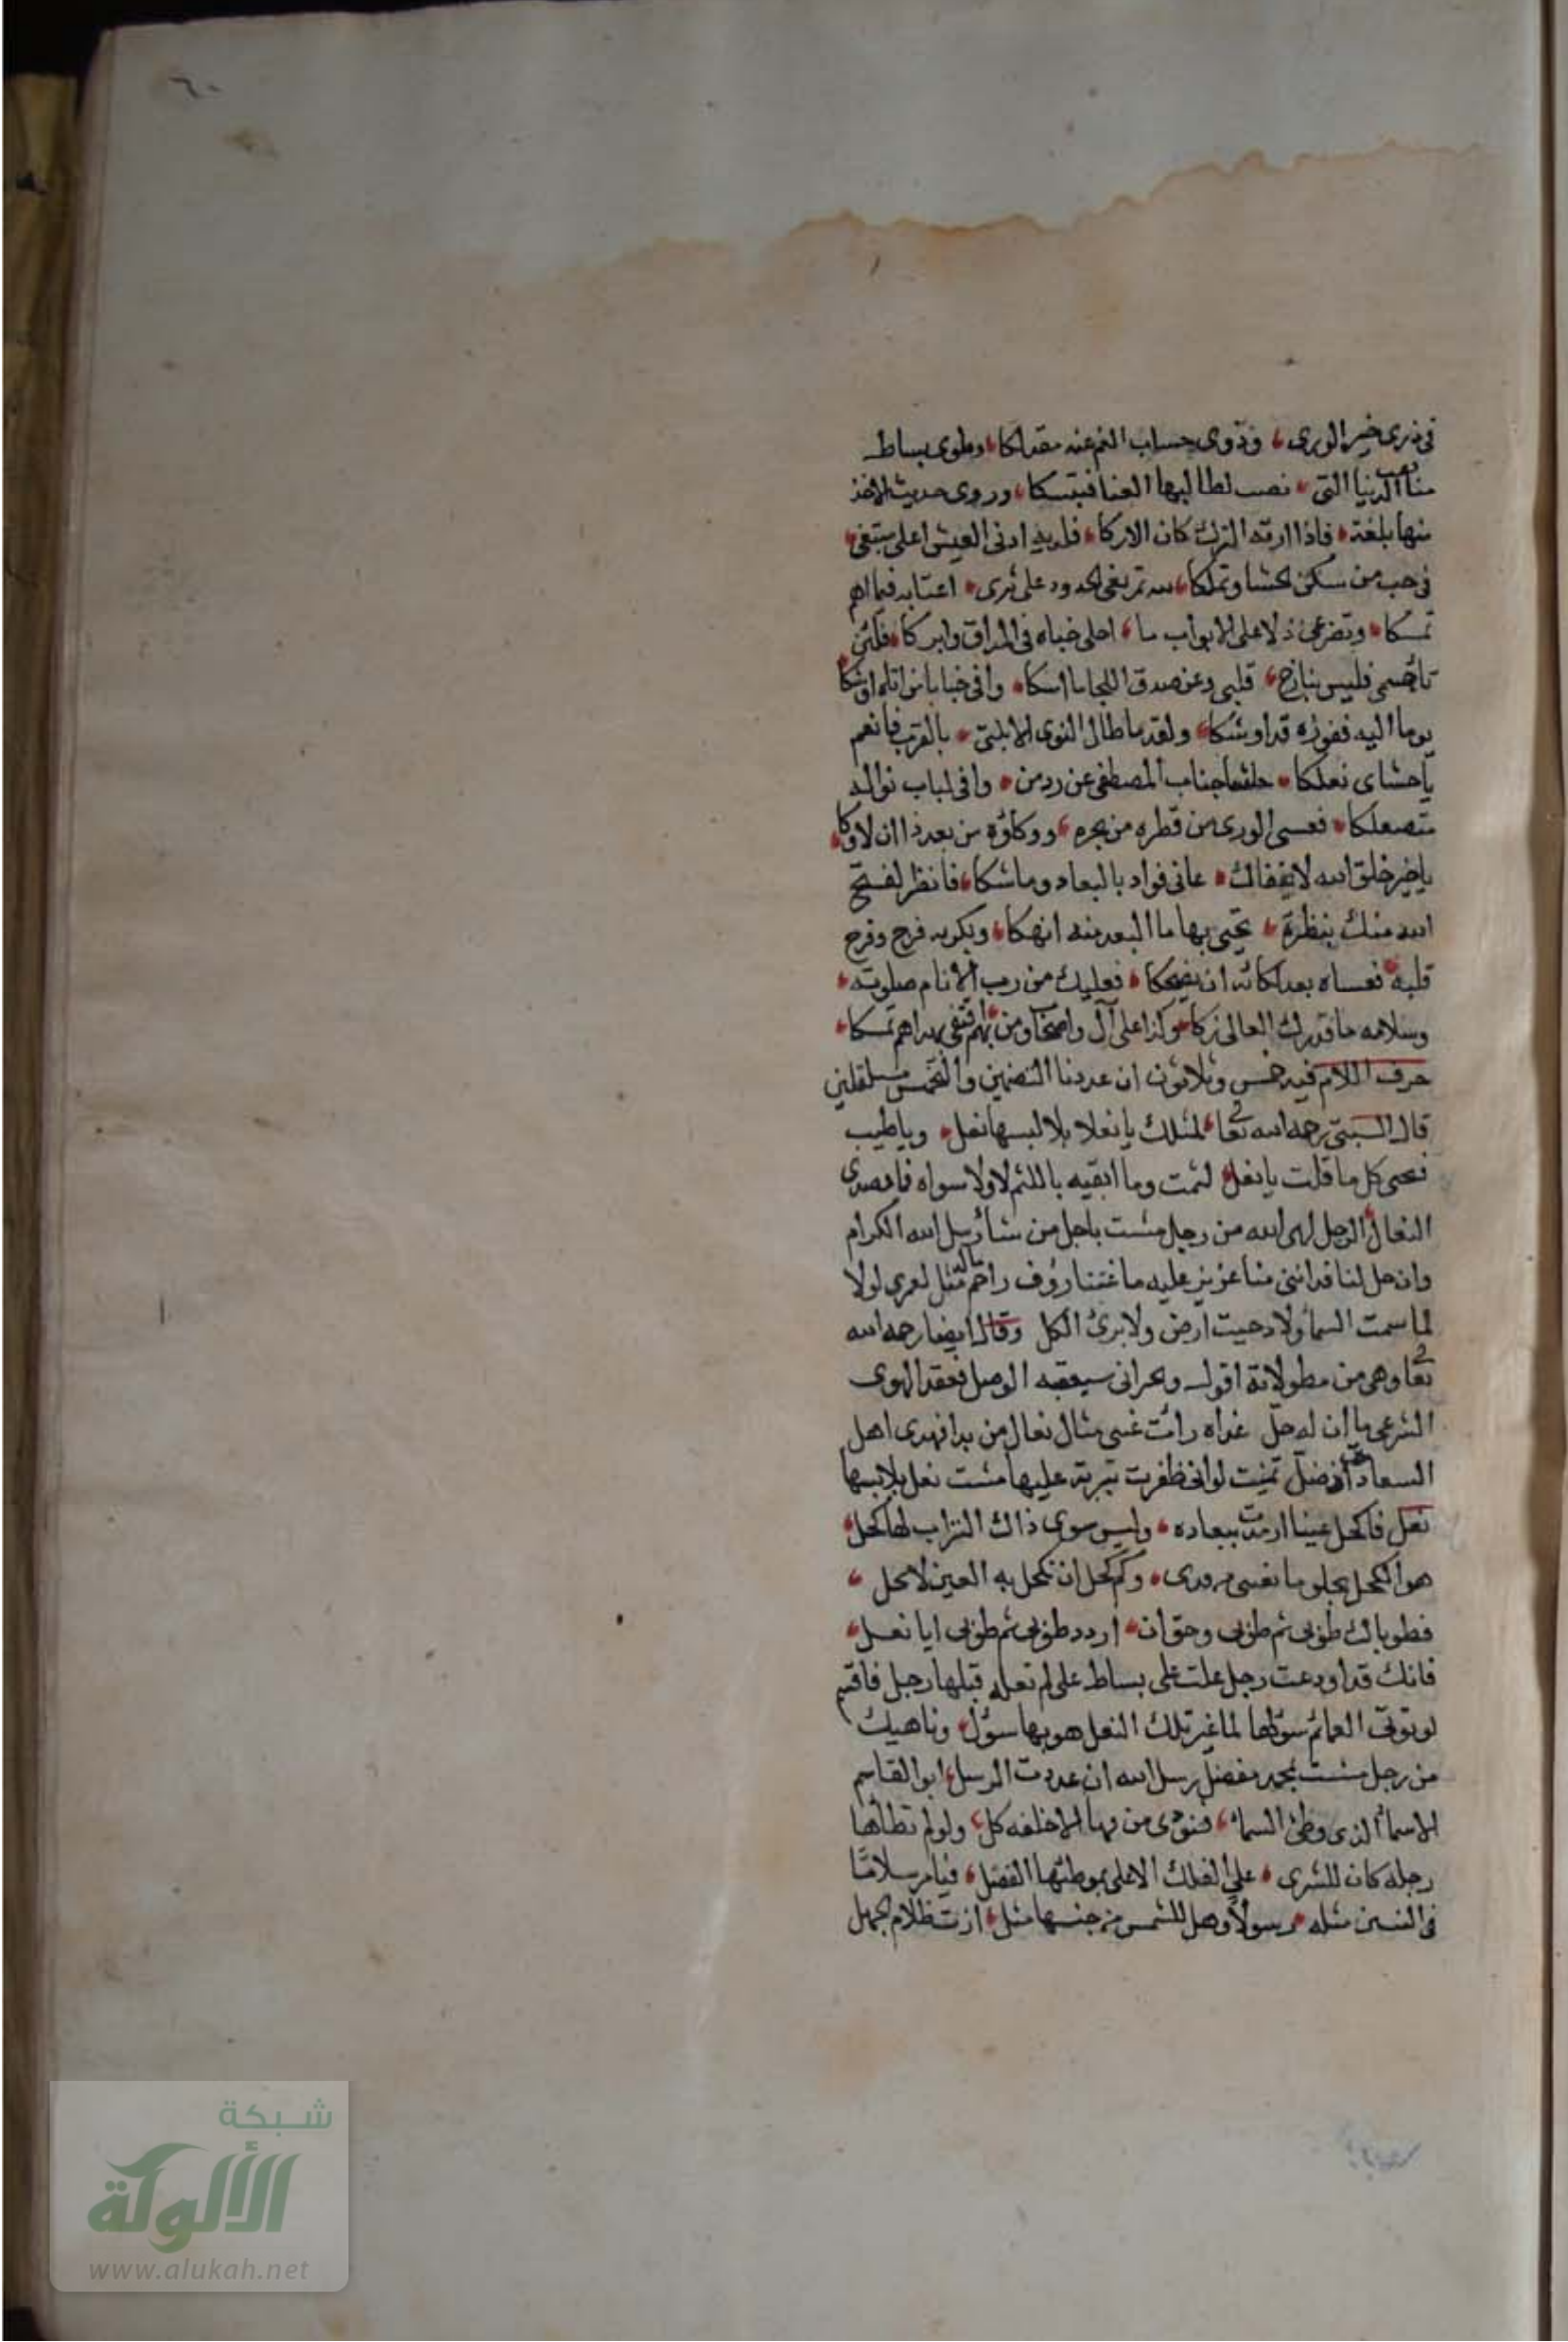 ٦٠
في ذرى خير الورى، وذوى حساب الغم عنه مقداكا، وطوى بساط
منا الدنيا التي، نصب لطالبها العنا فبتسكا، وروى حديث الاخذ
منها بلغة، فاذا ارته الترك كان الاركا، فلديه ادنى العيش اعلى مبتغى،
في حب من سكن الحشا وتملكا، لله تمريغى الخدود على ثرى، اعتابه فيما اهم
تمسكا، وتضرعى ذلا على الابواب ما، احلى خباه في المذاق وابركا، فلئن
تا جسمى فليس بنازح، قلبى وعن صدق اللجا ما امسكا، وافى خبابا من اتله او شكا
يوما اليه ففوزه قد اوشكا، ولقد ما طال النوى الا بلتى، بالقرب فانعم
يا حشاى نعلكا، حاشا جناب المصطفى عن رد من، وافى لباب نواله
متصعلكا، فعسى الورى من قطره من بحره، ووكاؤه من بعد ذا ان لا وكا،
يا خير خلق الله لا يخفاك، عانى فواد بالبعاد وما شكا، فانظر لفتح
الله منك بنظرة، تحيى بها ما البعد منه انهكا، وبكربه فرج وفرح
قلبه، فعساه بعد بكائه ان يضحكا، فعليك من رب الانام صلوته،
وسلامه ما قدرك العالى زكا، وكذا على آل واصحا ومن، بهم اقتفى بهداهم تمسكا،
حرف اللام فيه خمس وثلاثون ان عددنا التضمين والتخميس مستقلين
قال السبتى رحمه الله تعا، لمثلك يا نعلا بلابسها نعل، ويا طيب
نعمى كل ما قلت يا نعل، لثمت وما ابقيه باللثم لا ولا سواه فاقصدى
النعال الرجل لهى الله من رجل مشت باجل من شا رسل الله الكرام
وان حل لنا قد اتى منا عزيز عليه ما عنتنا رؤف راحم ماله مثل لعمرى لولا
لما سمت السما ولا دحيت ارض ولا برئ الكل وقال ايضا رحمه الله
تعا وهى من مطولاته اقول وهجرانى سيعقبه الوصل فعقد الهوى
الشرعى ما ان له حل غداه رات عينى مثال نعال من بدا فهدى اهل
السعادة اذ ضل تمنيت لو انى ظفرت بتربة عليها مشت نعل بلابسها
نعل فاكحل عينا ارمدت ببعاده، وليس سوى ذاك التراب لها كحل،
هو الكحل يجلو ما بعينى من قذى، وكم كحل ان تكحل به العين لا يجل،
فطوباك طوبى ثم طوبى وحق ان، اردد طوبى ثم طوبى ايا نعل،
فانك قد اودعت رجل علت على بساط على لم تعله قبلها رجل فاقسم
لو توتى العمائم سؤلها لما غير تلك النعل هو بها سؤل، وناهيك
من رجل مشت بمحمد مفضل رسل الله ان عددت الرسل، ابو القاسم
الاسما الذى وطئ السما، فنودى من فيها الا خلفه كل، ولو لم تطأها
رجله كان للثرى، على الفلك الاعلى بموطئها الفضل، فيا مرسلا ما
في النبيين مثله، رسولا وهل للشمس من جنسها مثل، ازلت ظلام الجهل
شبكة
الألوكة
www.alukah.net